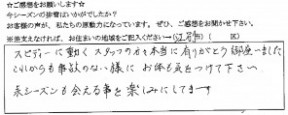 ☆ご感想をお願いします☆
今シーズンの排雪はいかがでしたか?
お客様の声が、私たちの原動力になっています。ぜひ、ご感想をお聞かせ下さい。
※差支えなければ、お住まいの地域をご記入ください→(江別市)( 区)
スピディーに動くスタッフの方々本当に有りがとう御座いました
これからも事故のない様にお体も気をつけて下さい
来シーズンも会える事を楽しみにしてます